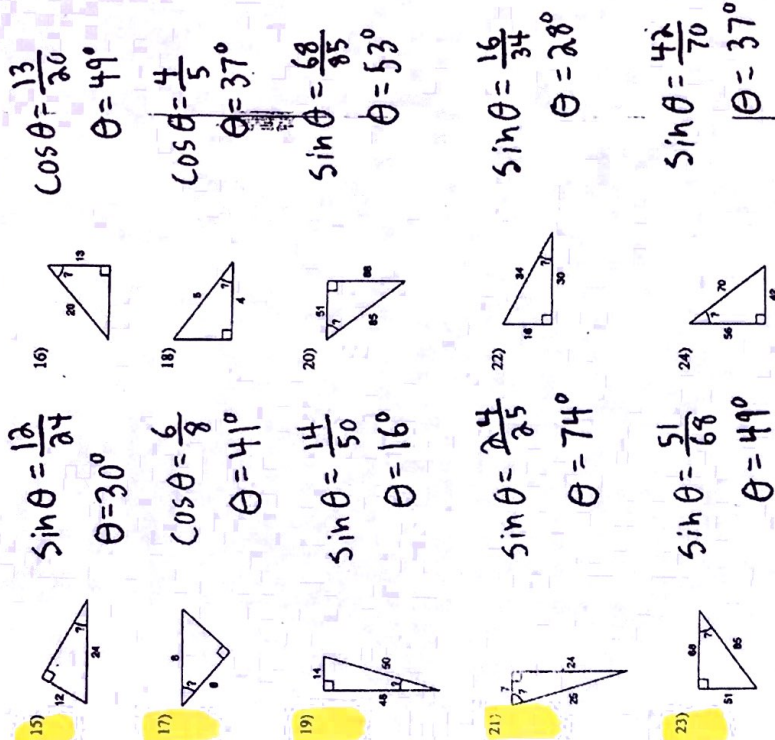 15)
12
?
24
sin θ = 12/24
θ = 30°
16)
20
?
13
cos θ = 13/20
θ = 49°
17)
8
?
6
cos θ = 6/8
θ = 41°
18)
5
?
4
cos θ = 4/5
θ = 37°
19)
14
48
50
?
sin θ = 14/50
θ = 16°
20)
51
?
68
85
sin θ = 68/85
θ = 53°
21)
?
?
24
25
sin θ = 24/25
θ = 74°
22)
16
34
?
30
sin θ = 16/34
θ = 28°
23)
68
?
51
85
sin θ = 51/68
θ = 49°
24)
70
?
56
42
sin θ = 42/70
θ = 37°